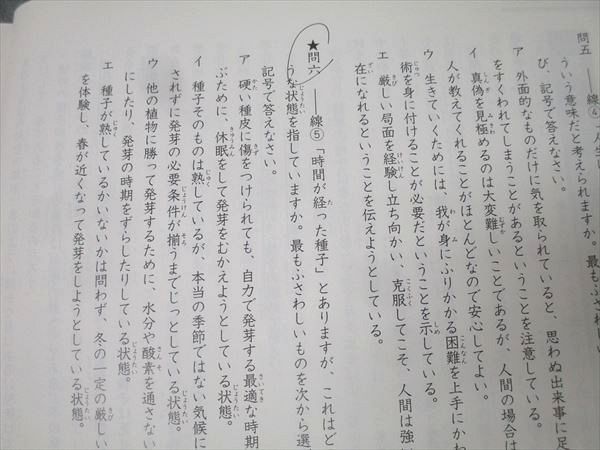 問五 ――線④「人生は
ういう意味だと考えられますか。最もふさわ
び、記号で答えなさい。
ア 外面的なものだけに気を取られていると、思わぬ出来事に足
をすくわれてしまうことがあるということを注意している。
イ 真偽を見極めるのは大変難しいことであるが、人間の場合は
人が教えてくれることがほとんどなので安心してよい。
ウ 生きていくためには、我が身にふりかかる困難を上手にかわ
術を身に付けることが必要だということを示している。
エ 厳しい局面を経験し立ち向かい、克服してこそ、人間は強
在になれるということを伝えようとしている。
★問六 ――線⑤「時間が経った種子」とありますが、これはど
うな状態を指していますか。最もふさわしいものを次から選
記号で答えなさい。
ア 硬い種皮に傷をつけられても、自力で発芽する最適な時期
ぶために、休眠をして発芽をむかえようとしている状態。
イ 種子そのものは熟しているが、本当の季節ではない気候に
されずに発芽の必要条件が揃うまでじっとしている状態。
ウ 他の植物に勝って発芽するために、水分や酸素を通さない
にしたり、発芽の時期をずらしたりしている状態。
エ 種子が熟しているかいないかは問わず、冬の一定の厳しい
を体験し、春が近くなって発芽をしようとしている状態。